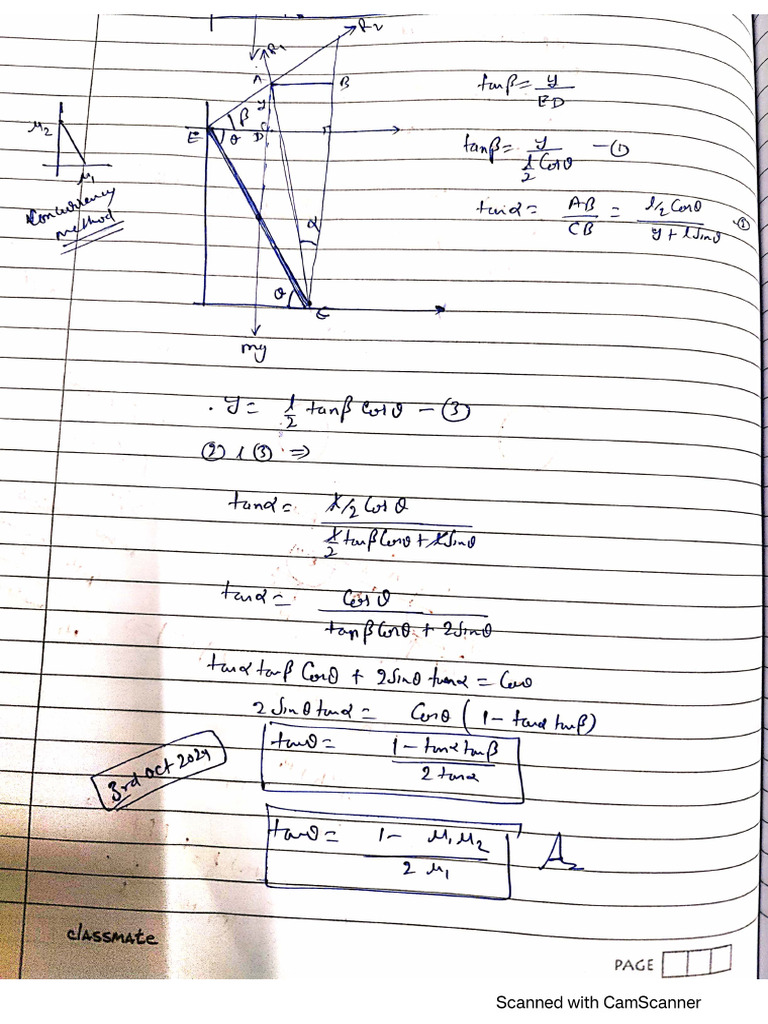 R₂
R₁
A
B
y
β
E
θ
D
C
α
θ
C
mg
μ₂
μ₁
Concurrency
method
tanβ = y/ED
tanβ = y/(l/2 Cosθ) - ①
tanα = AB/CB = (l/2 Cosθ)/(y + l Sinθ) - ②
. y = l/2 tanβ Cosθ - ③
② & ③ ⇒
tanα = (l/2 Cosθ)/(l/2 tanβ Cosθ + l Sinθ)
tanα = Cosθ/(tanβ Cosθ + 2 Sinθ)
tanα tanβ Cosθ + 2 Sinθ tanα = Cosθ
2 Sinθ tanα = Cosθ (1 - tanα tanβ)
tanθ = (1 - tanα tanβ)/(2 tanα)
3rd Oct 2024
tanθ = (1 - μ₁μ₂)/(2 μ₁)
classmate
PAGE
Scanned with CamScanner